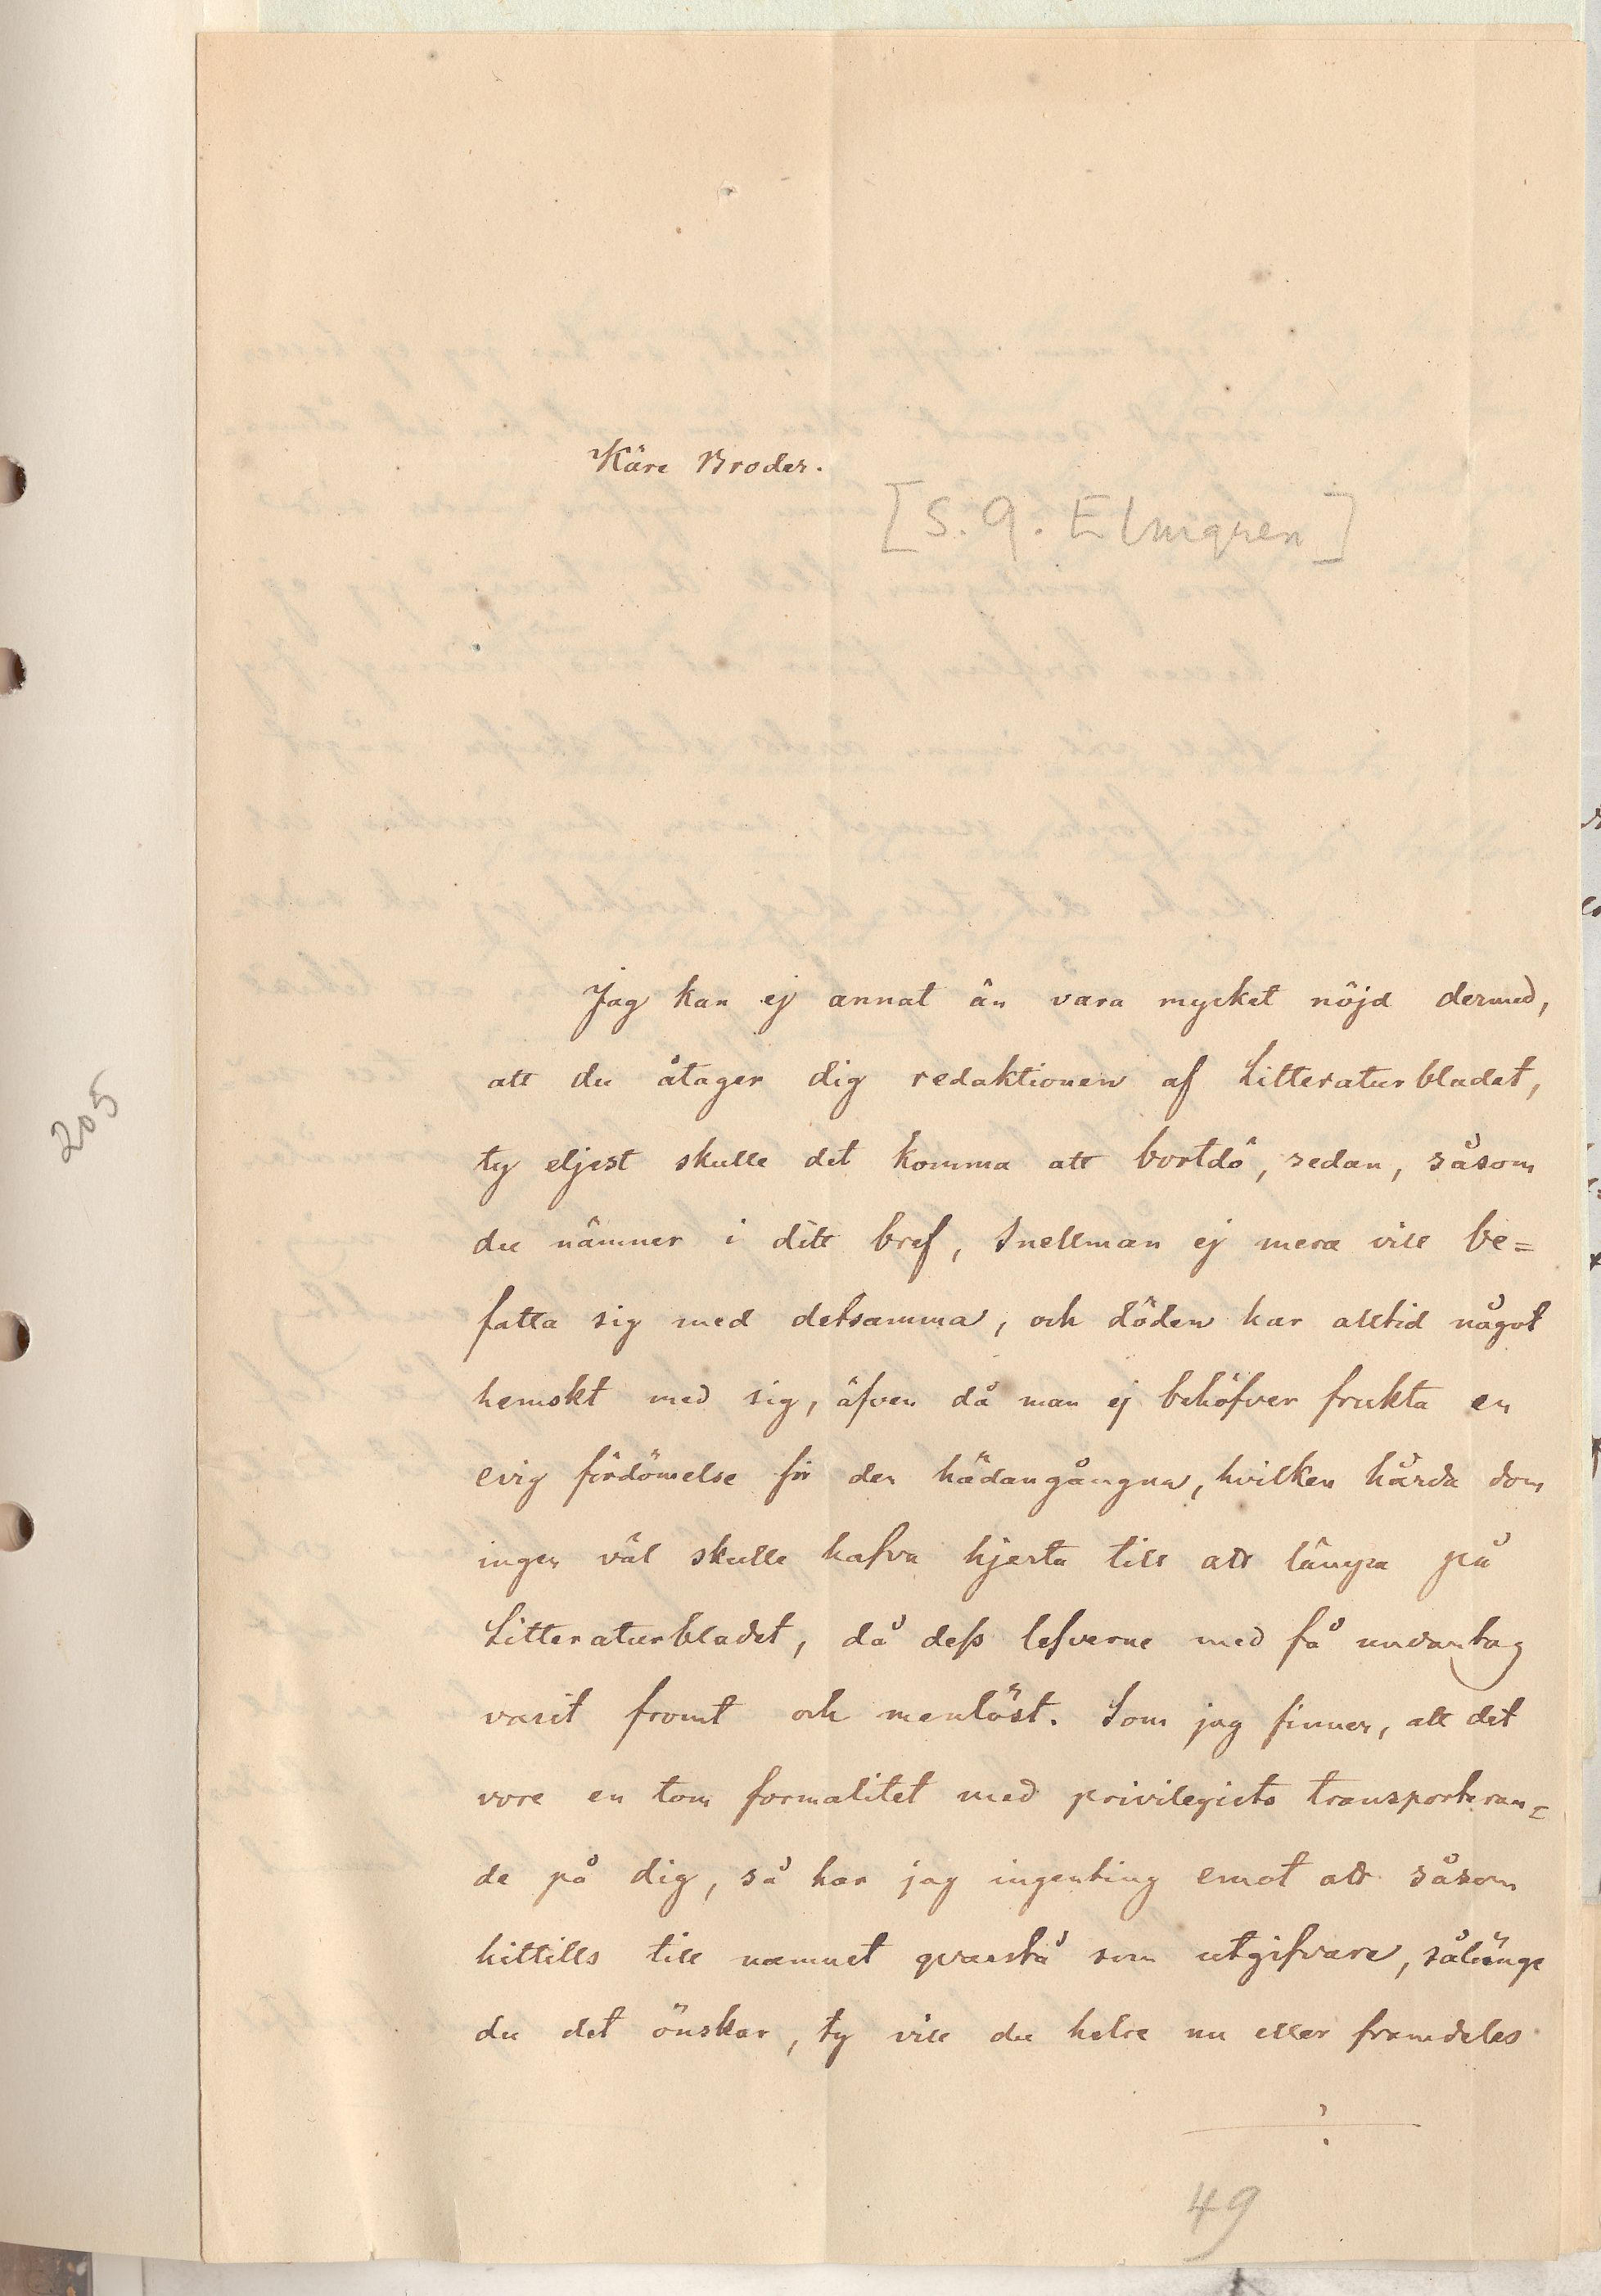 Käre Broder.
[S. G. Elmgren]
Jag kan ej annat än vara mycket nöjd dermed,
att du åtager dig redaktionen af Litteraturbladet,
ty eljest skulle det komma att bortdö, sedan, såsom
du nämner i ditt bref, Snellman ej mera vill be=
fatta sig med detsamma, och döden har alltid något
hemskt med sig, äfven då man ej behöfver frukta en
evig fördömelse för den hädangångna, hvilken hårda dom
ingen väl skulle hafva hjerta till att lämpa på
Litteraturbladet, då dess lefverne med få undantag
varit fromt och menlöst. Som jag finner, att det
vore en tom formalitet med privilegiets transporteran=
de på dig, så har jag ingenting emot att såsom
hittills till namnet qvarstå som utgifvare, sålänge
du det önskar, ty vill du helre nu eller framdeles
205
49